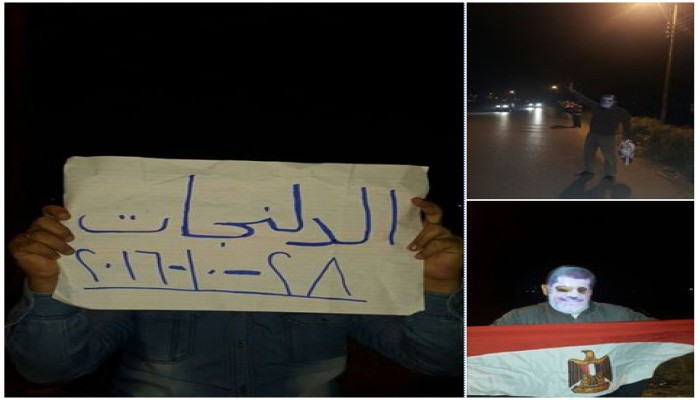 الدلنجات
٢٨-١٠-٢٠١٦